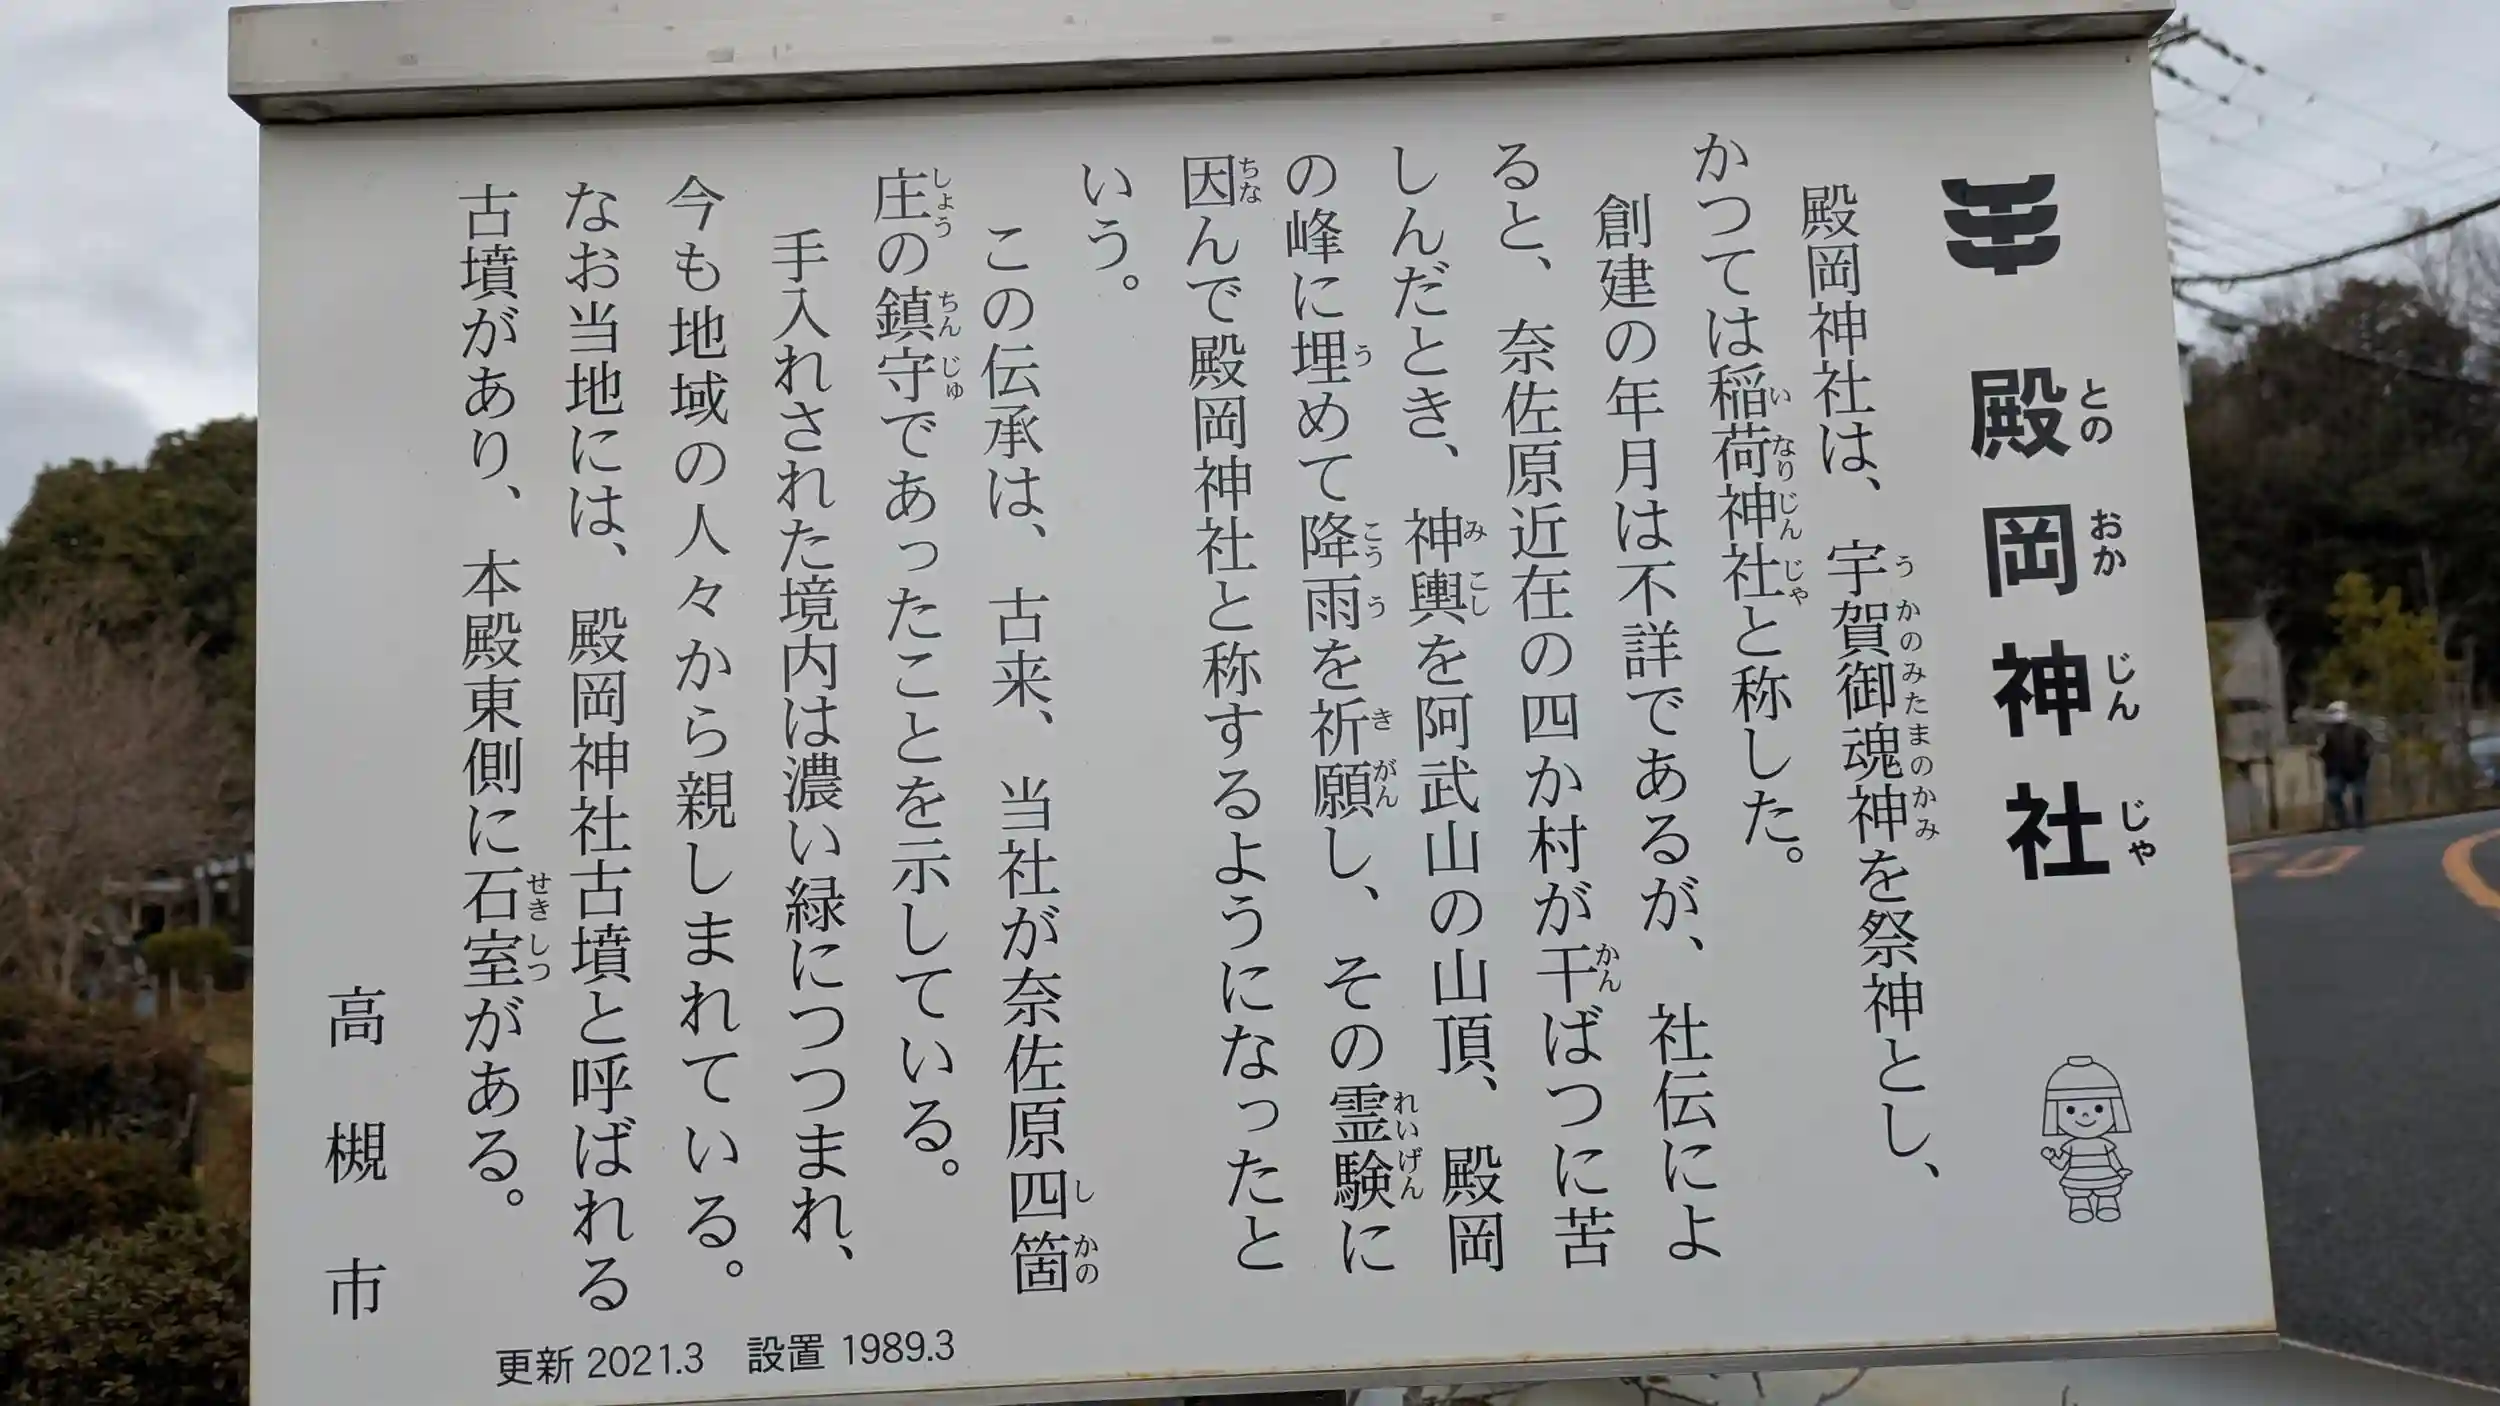 殿岡神社
とのおかじんじゃ
殿岡神社は、宇賀御魂神を祭神とし、
うかのみたまのかみ
かつては稲荷神社と称した。
いなりじんじゃ
創建の年月は不詳であるが、社伝によ
ると、奈佐原近在の四か村が干ばつに苦
かん
しんだとき、神輿を阿武山の山頂、殿岡
みこし
の峰に埋めて降雨を祈願し、その霊験に
うこううきがんれいげん
因んで殿岡神社と称するようになったと
ちな
いう。
この伝承は、古来、当社が奈佐原四箇
しかの
庄の鎮守であったことを示している。
しょうちんじゅ
手入れされた境内は濃い緑につつまれ、
今も地域の人々から親しまれている。
なお当地には、殿岡神社古墳と呼ばれる
古墳があり、本殿東側に石室がある。
せきしつ
高槻市
更新 2021.3 設置 1989.3